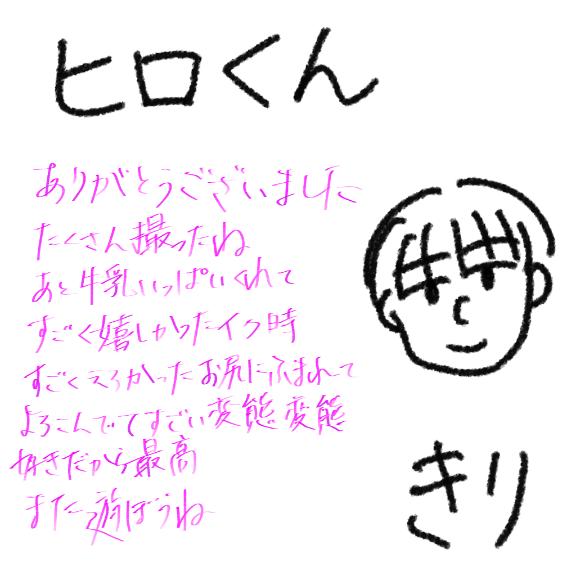 ヒロくん
ありがとうございました
たくさん撮ったね
あと牛乳いっぱいくれて
すごく嬉しかったイク時
すごくえろかったお尻にふまれて
よろこんでてすごい変態変態
好きだから最高
また遊ぼうね
きり